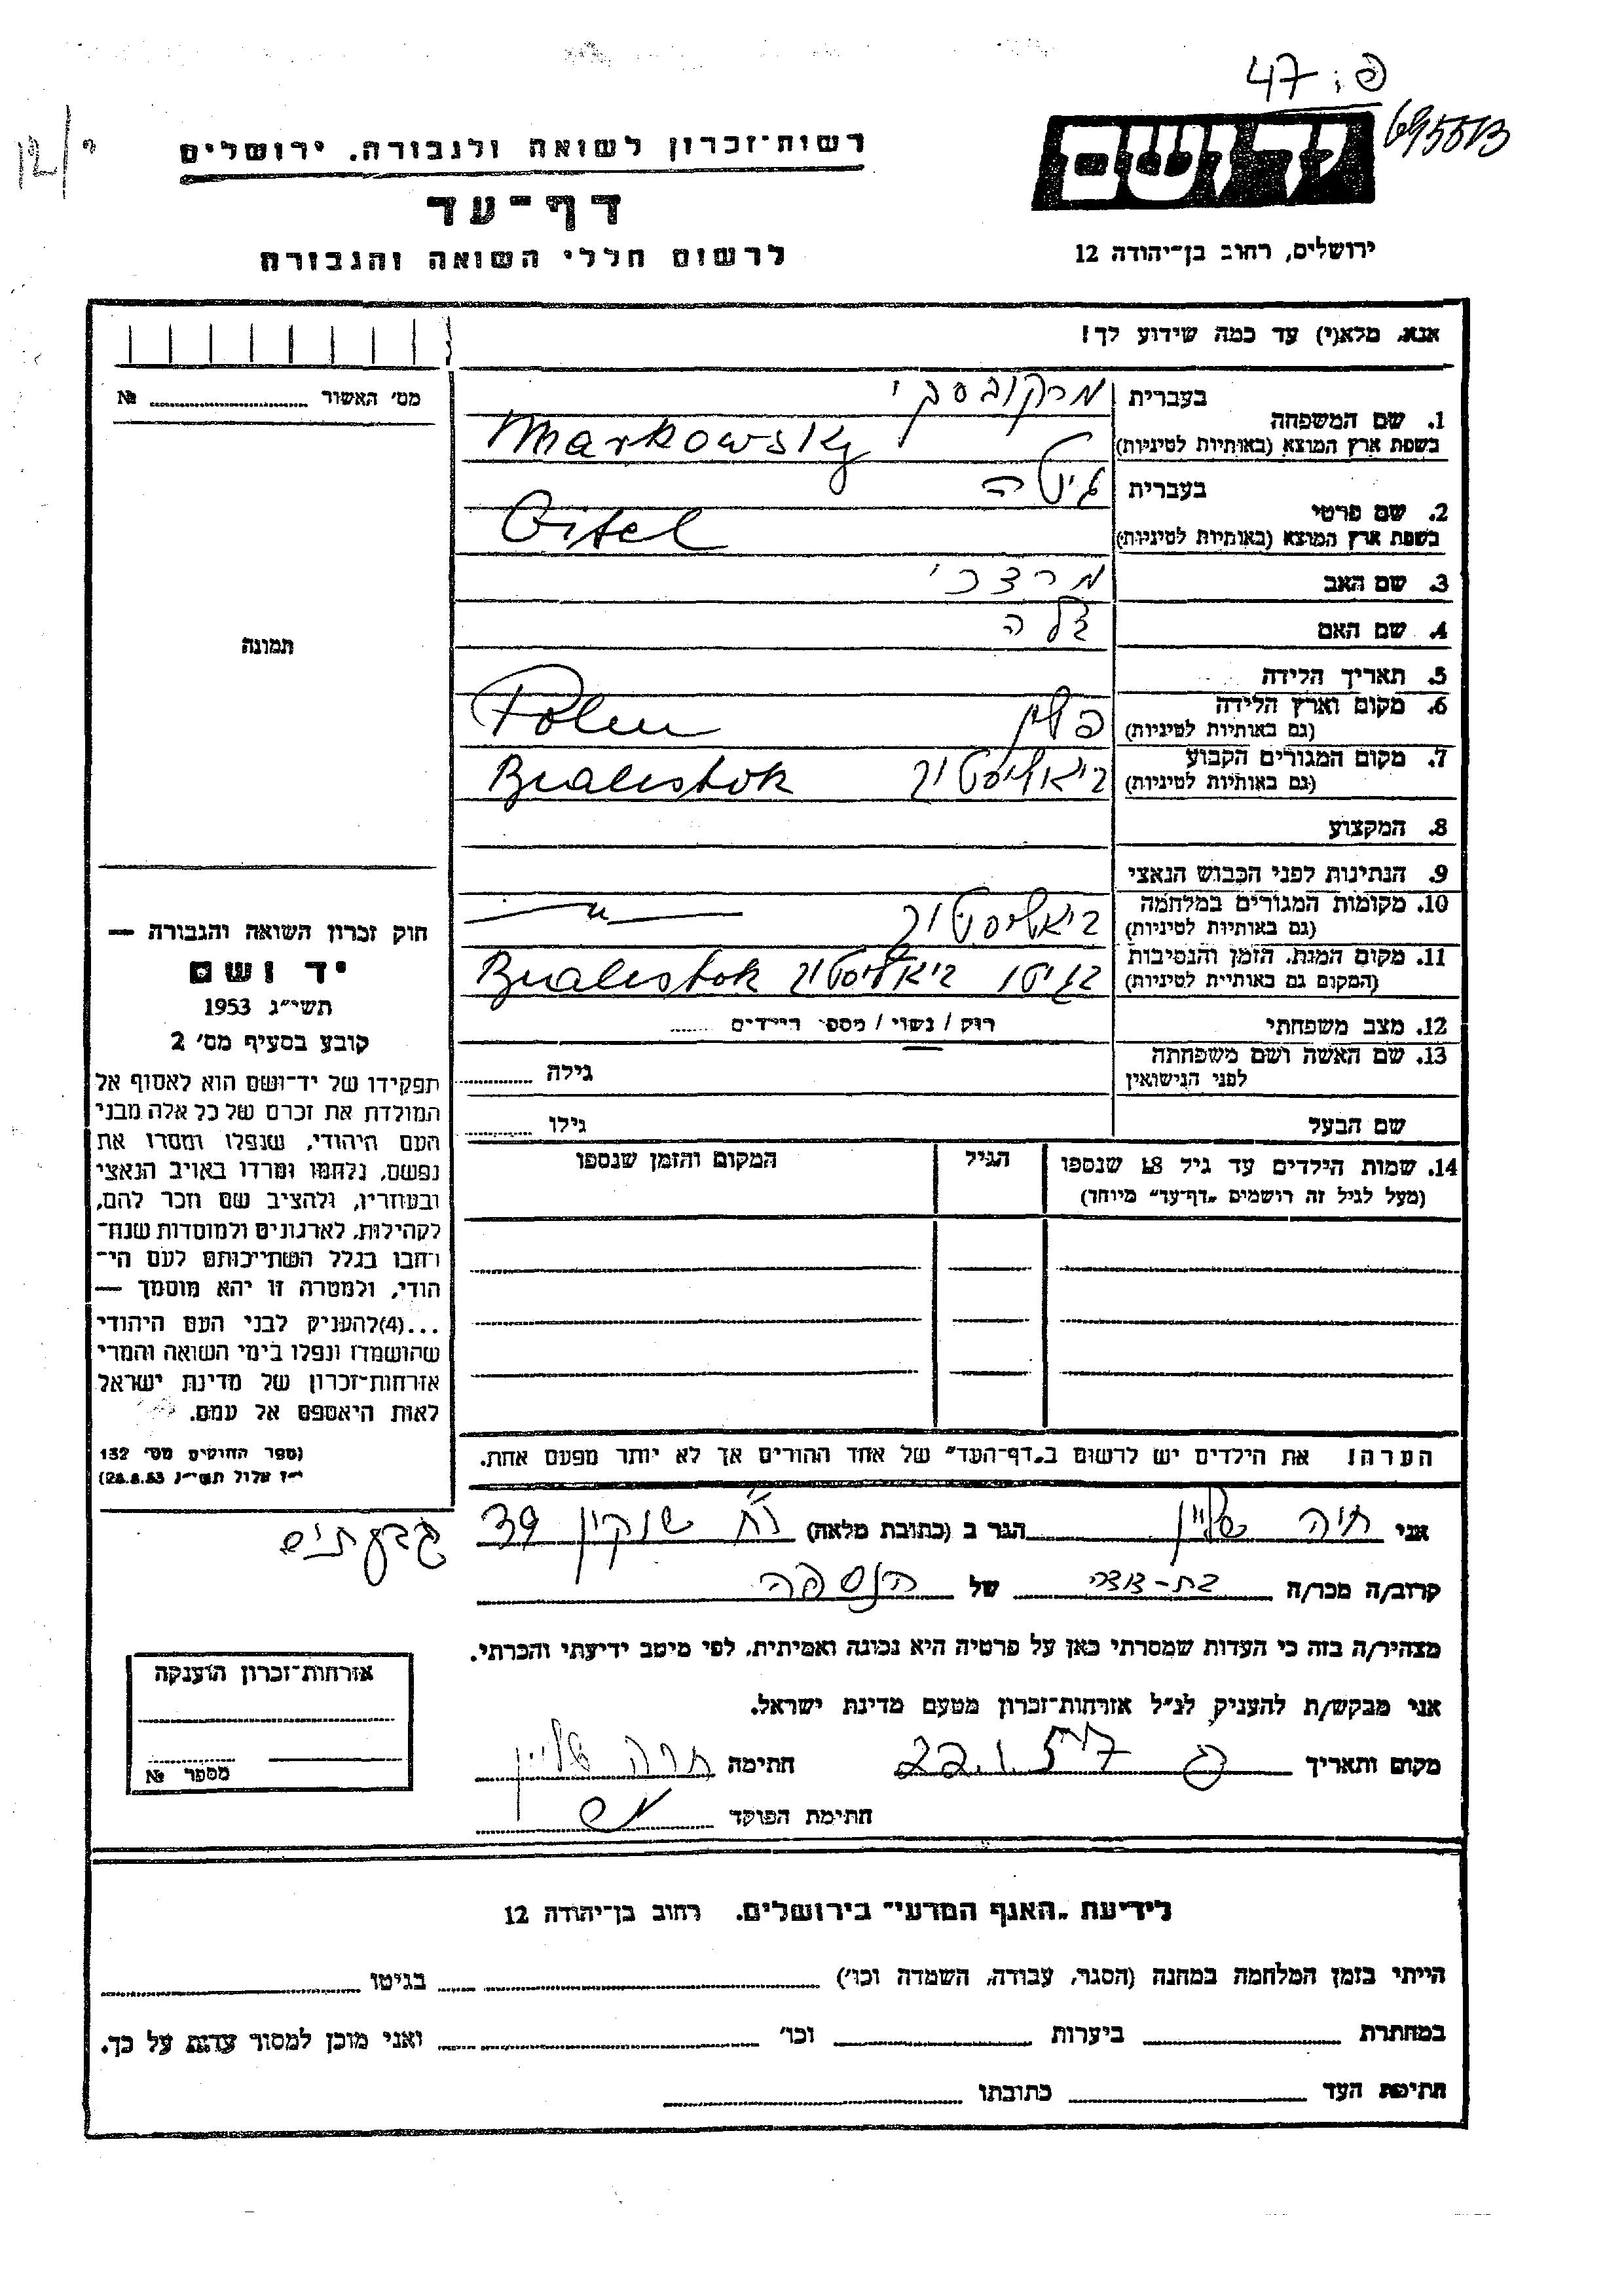 פ: 47
695513
יד ושם
רשות־זכרון לשואה ולגבורה, ירושלים
דף־עד
לרשום חללי השואה והגבורה
ירושלים, רחוב בן־יהודה 12
אנא, מלא(י) עד כמה שידוע לך!
מס' האשור № ........
1. שם המשפחה בעברית מרקובסקי
בשפת ארץ המוצא (באותיות לטיניות) Markowsky
2. שם פרטי בעברית גיטה
בשפת ארץ המוצא (באותיות לטיניות) Gitel
3. שם האב מרדכי
4. שם האם
5. תאריך הלידה
6. מקום וארץ הלידה
(גם באותיות לטיניות) פולין Polen
7. מקום המגורים הקבוע
(גם באותיות לטיניות) ביאליסטוק Bialestok
8. המקצוע
9. הנתינות לפני הכבוש הנאצי
10. מקומות המגורים במלחמה
(גם באותיות לטיניות) ביאליסטוק —"—
11. מקום המות, הזמן והנסיבות
(המקום גם באותיות לטיניות) בגיטו ביאליסטוק Bialestok
12. מצב משפחתי רוק / נשוי / מספר הילדים ......
13. שם האשה ושם משפחתה
לפני הנישואין גילה ........
שם הבעל גילו ........
14. שמות הילדים עד גיל 18 שנספו הגיל המקום והזמן שנספו
(מעל לגיל זה רושמים „דף־עד" מיוחד)
הערה! את הילדים יש לרשום ב„דף־העד" של אחד ההורים אך לא יותר מפעם אחת.
תמונה
חוק זכרון השואה והגבורה —
יד ושם
תשי״ג 1953
קובע בסעיף מס' 2
תפקידו של יד־ושם הוא לאסוף אל
המולדת את זכרם של כל אלה מבני
העם היהודי, שנפלו ומסרו את
נפשם, נלחמו ומרדו באויב הנאצי
ובעוזריו, ולהציב שם וזכר להם,
לקהילות, לארגונים ולמוסדות שנח־
רחבו בגלל השתייכותם לעם הי־
הודי, ולמטרה זו יהא מוסמך —
...(4)להעניק לבני העם היהודי
שהושמדו ונפלו בימי השואה והמרי
אזרחות־זכרון של מדינת ישראל
לאות היאספם אל עמם.
(ספר החוקים מס' 132
י״ז אלול תשי״ג 28.8.53)
אני חיה שליין הגר ב (כתובת מלאה) רח' שנקין 39 גבעתיים
קרוב/ה מכר/ה בת-דודה של הנספה
מצהיר/ה בזה כי העדות שמסרתי כאן על פרטיה היא נכונה ואמיתית, לפי מיטב ידיעתי והכרתי.
אני מבקש/ת להעניק לנ״ל אזרחות־זכרון מטעם מדינת ישראל.
מקום ותאריך 22.1.57 חתימה חיה שליין
חתימת הפוקד
אזרחות־זכרון הוענקה
מספר №
לידיעת „האגף המדעי" בירושלים, רחוב בן־יהודה 12
הייתי בזמן המלחמה במחנה (הסגר, עבודה, השמדה וכו') ........ בגיטו ........
במחתרת ........ ביערות ........ וכו' ........ ואני מוכן למסור עדות על כך.
חתימת העד ........ כתובתו ........